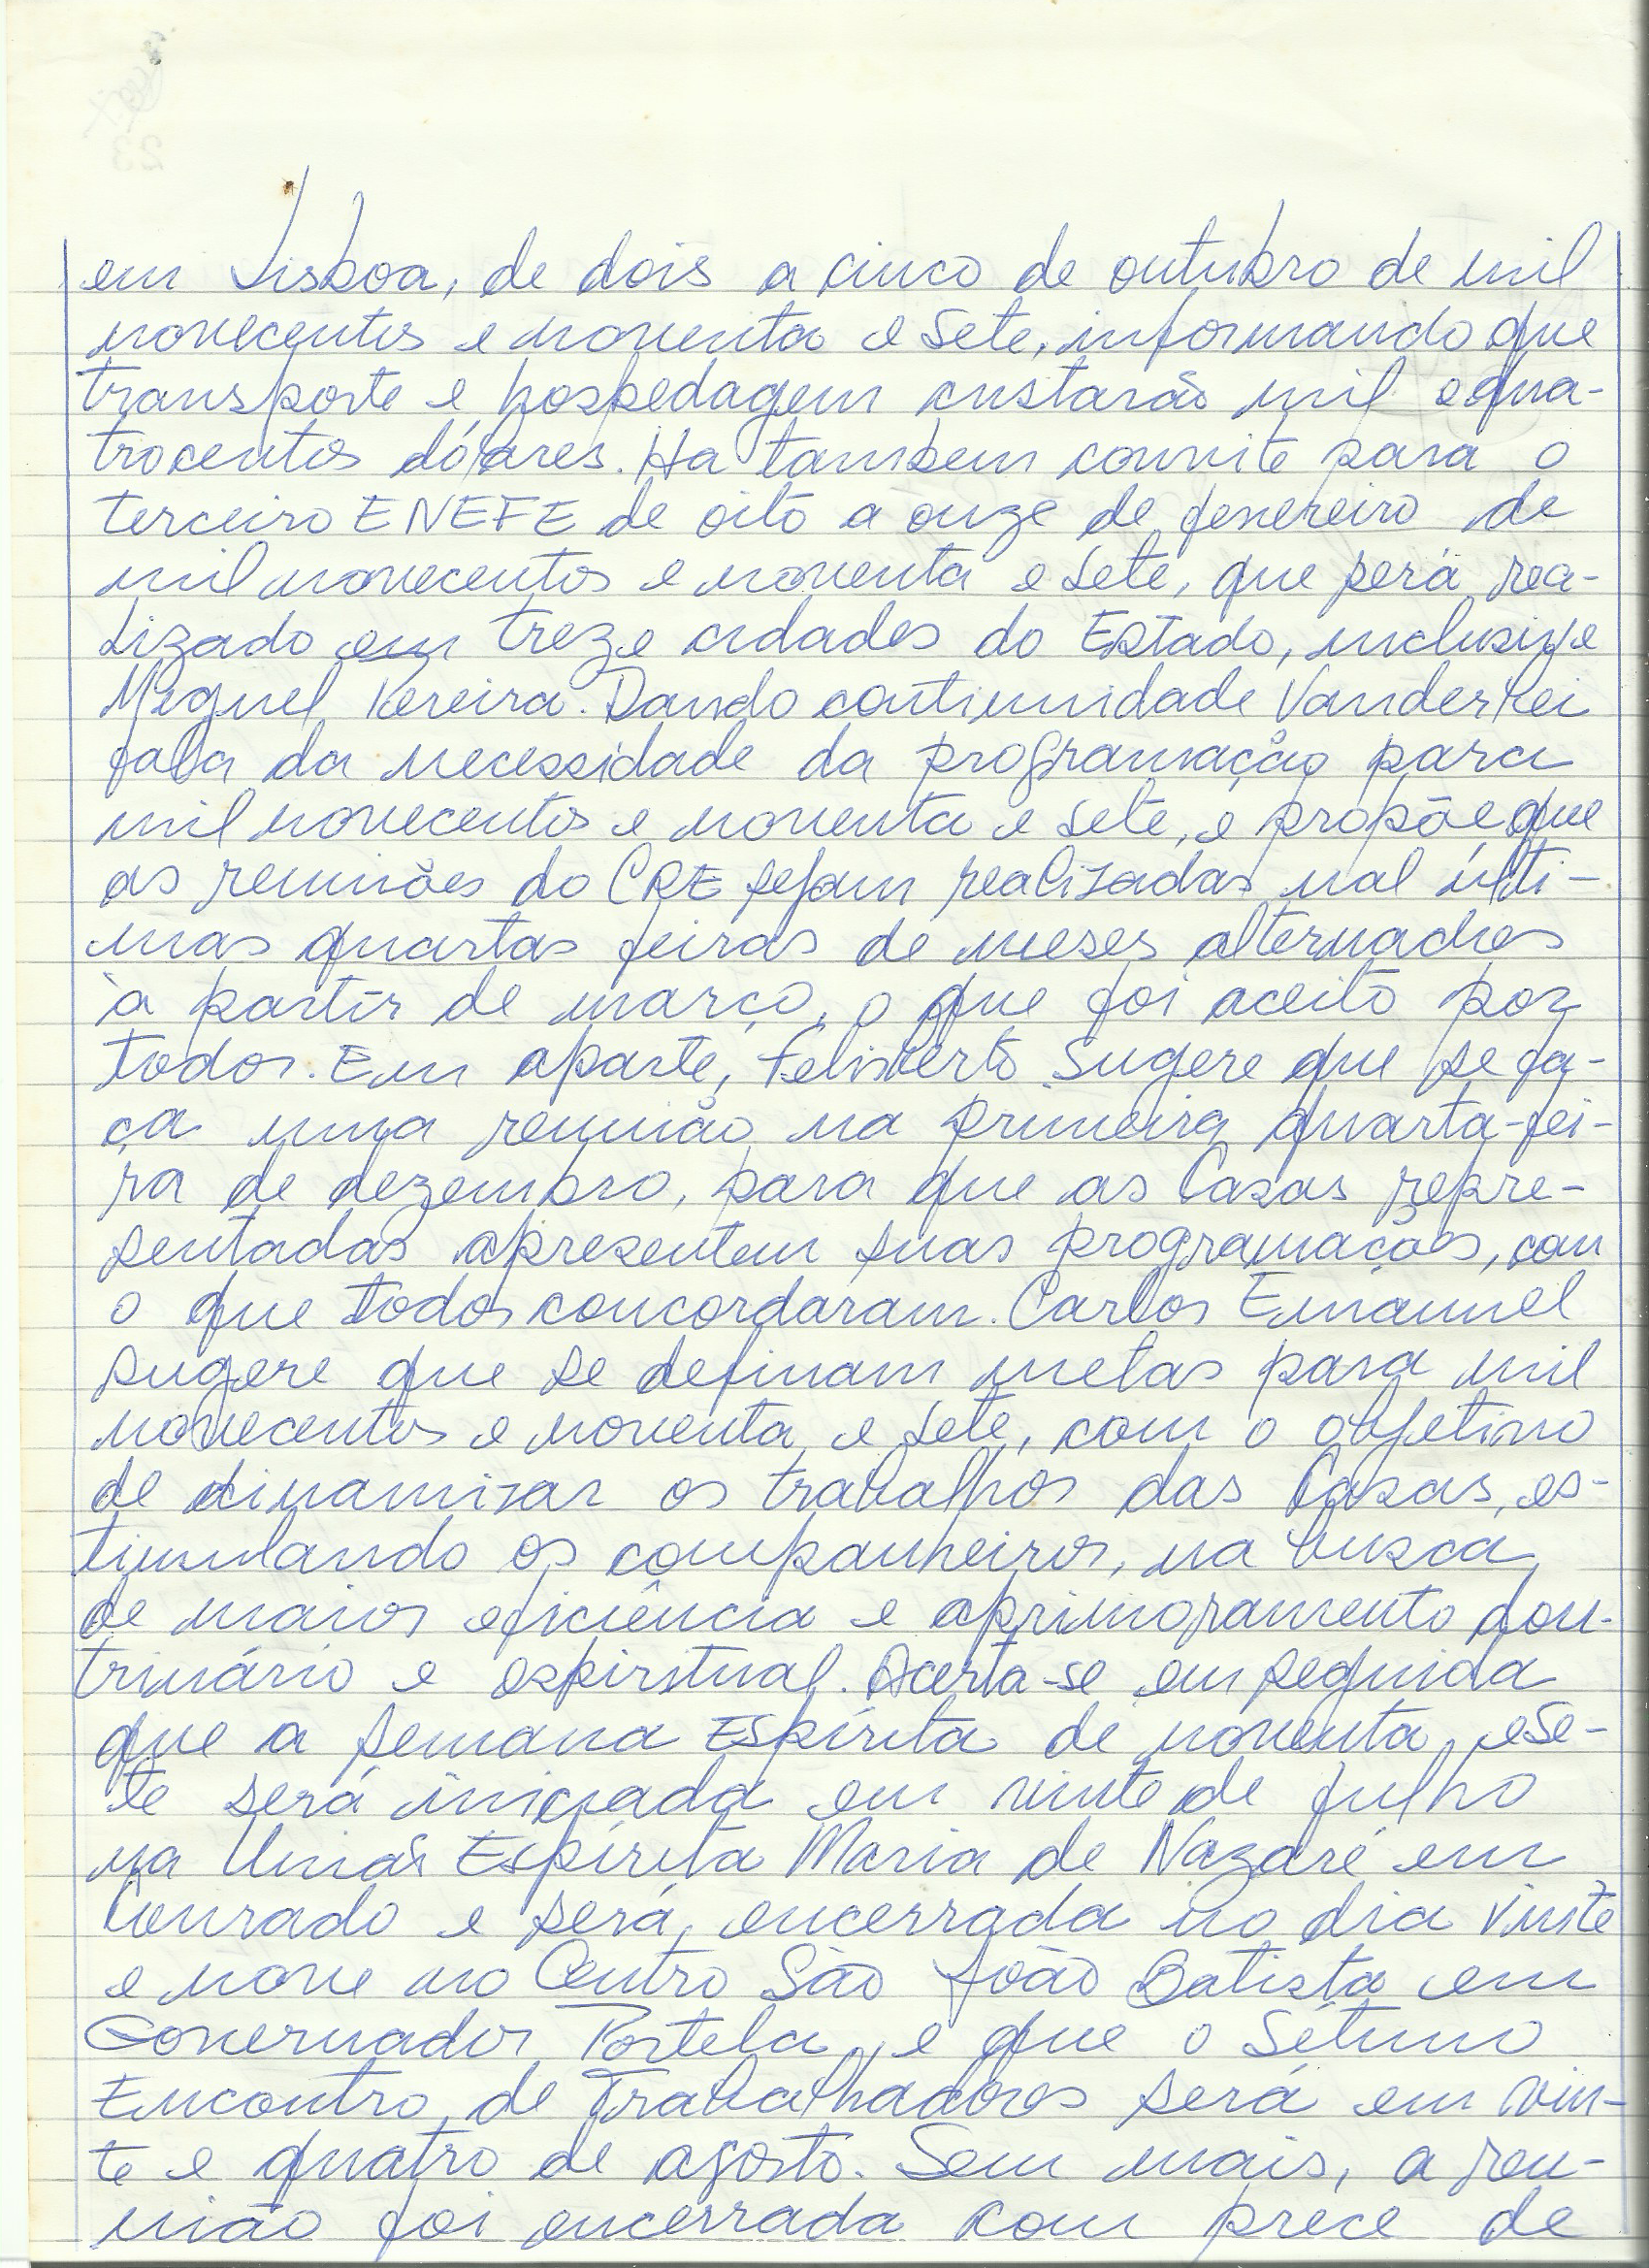 em Lisboa, de dois a cinco de outubro de mil
novecentos e noventa e sete, informando que
transporte e hospedagem custarão mil e qua-
trocentos dólares. Ha tambem convite para o
terceiro ENEFE de oito a onze de fevereiro de
mil novecentos e noventa e sete, que será rea-
lizado em treze cidades do Estado, inclusive
Miguel Pereira. Dando continuidade Vanderlei
fala da necessidade da programação para
mil novecentos e noventa e sete, e propõe que
as reuniões do CRE sejam realizadas nas últi-
mas quartas feiras de meses alternados
à partir de março, o que foi aceito por
todos. Em aparte, Felisberto sugere que se fa-
ça uma reunião na primeira quarta-fei-
ra de dezembro, para que as Casas repre-
sentadas apresentem suas programações, com
o que todos concordaram. Carlos Emanuel
sugere que se definam metas para mil
novecentos e noventa e sete, com o objetivo
de dinamizar os trabalhos das Casas, es-
timulando os companheiros, na busca
de maior eficiência e aprimoramento dou-
trinário e espiritual. Acerta-se em seguida
que a Semana Espírita de noventa e se-
te será iniciada em vinte de julho
na União Espírita Maria de Nazaré em
Conrado e será encerrada no dia vinte
e nove no Centro São João Batista em
Governador Portela, e que o Sétimo
Encontro de Trabalhadores será em vin-
te e quatro de agosto. Sem mais, a reu-
nião foi encerrada com prece de